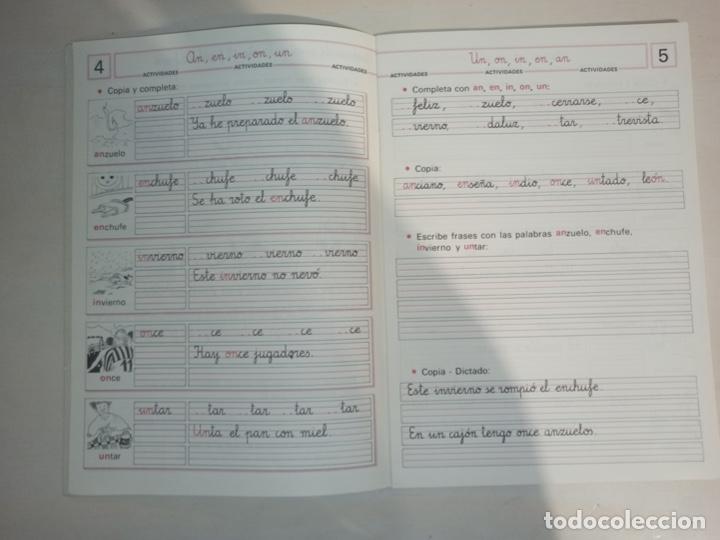 4
An, en, in, on, un
ACTIVIDADES ACTIVIDADES ACTIVIDADES
• Copia y completa:
anzuelo
anzuelo . . zuelo . . zuelo . . zuelo
Ya he preparado el anzuelo.
enchufe
enchufe . . chufe . . chufe . . chufe
Se ha roto el enchufe.
invierno
invierno . . vierno . . vierno . . vierno
Este invierno no nevó.
once
once . . ce . . ce . . ce . . ce
Hay once jugadores.
untar
untar . . tar . . tar . . tar . . tar
Unta el pan con miel.
Un, on, in, en, an
5
ACTIVIDADES ACTIVIDADES ACTIVIDADES
• Completa con an, en, in, on, un:
. . feliz, . . zuelo, . . cerrarse, . . ce,
. . vierno, . . daluz, . . tar, . . trevista.
• Copia:
anciano, enseña, indio, once, untado, león.
• Escribe frases con las palabras anzuelo, enchufe,
invierno y untar:
• Copia - Dictado:
Este invierno se rompió el enchufe.
En un cajón tengo once anzuelos.
todocoleccion